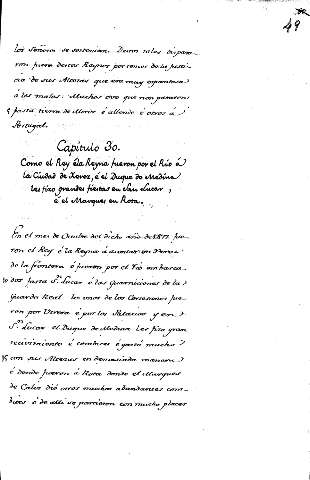 49
los Señores se sostenian. Destos tales dispara-
ron fuera destos Reynos por temor de la justi-
cia de sus Altezas que era muy espantosa
á los malos. Muchos ovo que non pararon
5 fasta tierra de Moros é allende é otros á
Portugal.
Capitulo 30.
Como el Rey é la Reyna fueron por el Rio á
la Ciudad de Xerez, é el Duque de Medina
les fizo grandes fiestas en San Lucar,
é el Marques en Rota.
En el mes de Octubre del dicho año de 1477 fue-
ron el Rey é la Reyna á en Xerez
de la frontera é fueron por el rio embarca-
10 dos hasta Sn. Lucar é las Guarniciones de la
Guarda Real los unos de los Cortesanos fue-
ron por Utrera é por los Palacios y en
Sn. Lucar el Duque de Medina les fizo gran
recivimiento é combites é gastó mucho
15 con sus Altezas en demasiada manera
é donde fueron á Rota donde el Marques
de Caliz dió otros muchos abundantes com-
bites é de alli se partieron con mucho placer